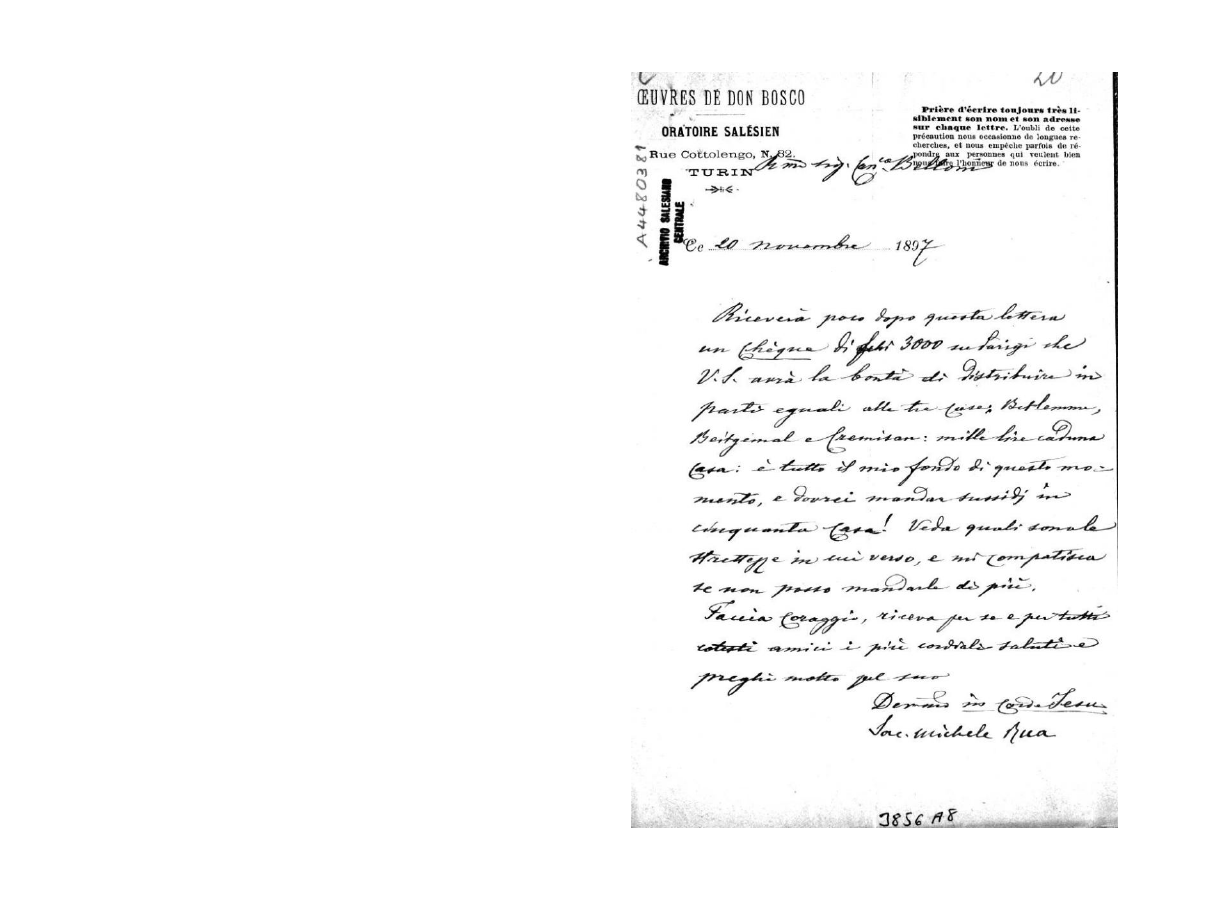 20
ŒUVRES DE DON BOSCO
ORATOIRE SALÉSIEN
Rue Cottolengo, N. 32.
TURIN
Prière d'écrire toujours très li-
siblement son nom et son adresse
sur chaque lettre. L'oubli de cette
précaution nous occasionne de longues re-
cherches, et nous empêche parfois de ré-
pondre aux personnes qui veulent bien
nous faire l'honneur de nous écrire.
A4480381
ARCHIVIO SALESIANO
CENTRALE
Rmo Sig. Can.co Belloni
Ce 20 novembre 1897
Riceverà poco dopo questa lettera
un chèque di 3000 su Parigi che
V. S. avrà la bontà di distribuire in
parti eguali alle tre case: Betlemme,
Beitgemal e Cremisan: mille lire caduna
casa: è tutto il mio fondo di questo mo-
mento, e dovrei mandar sussidj in
cinquanta case! Veda quali sono le
strettezze in cui verso, e mi compatisca
se non posso mandarle di più.
Faccia coraggio, riceva per se e per tutti
cotesti amici i più cordiali saluti e
preghi molto pel suo
in Corde Jesu
Sac. Michele Rua
3856 A8